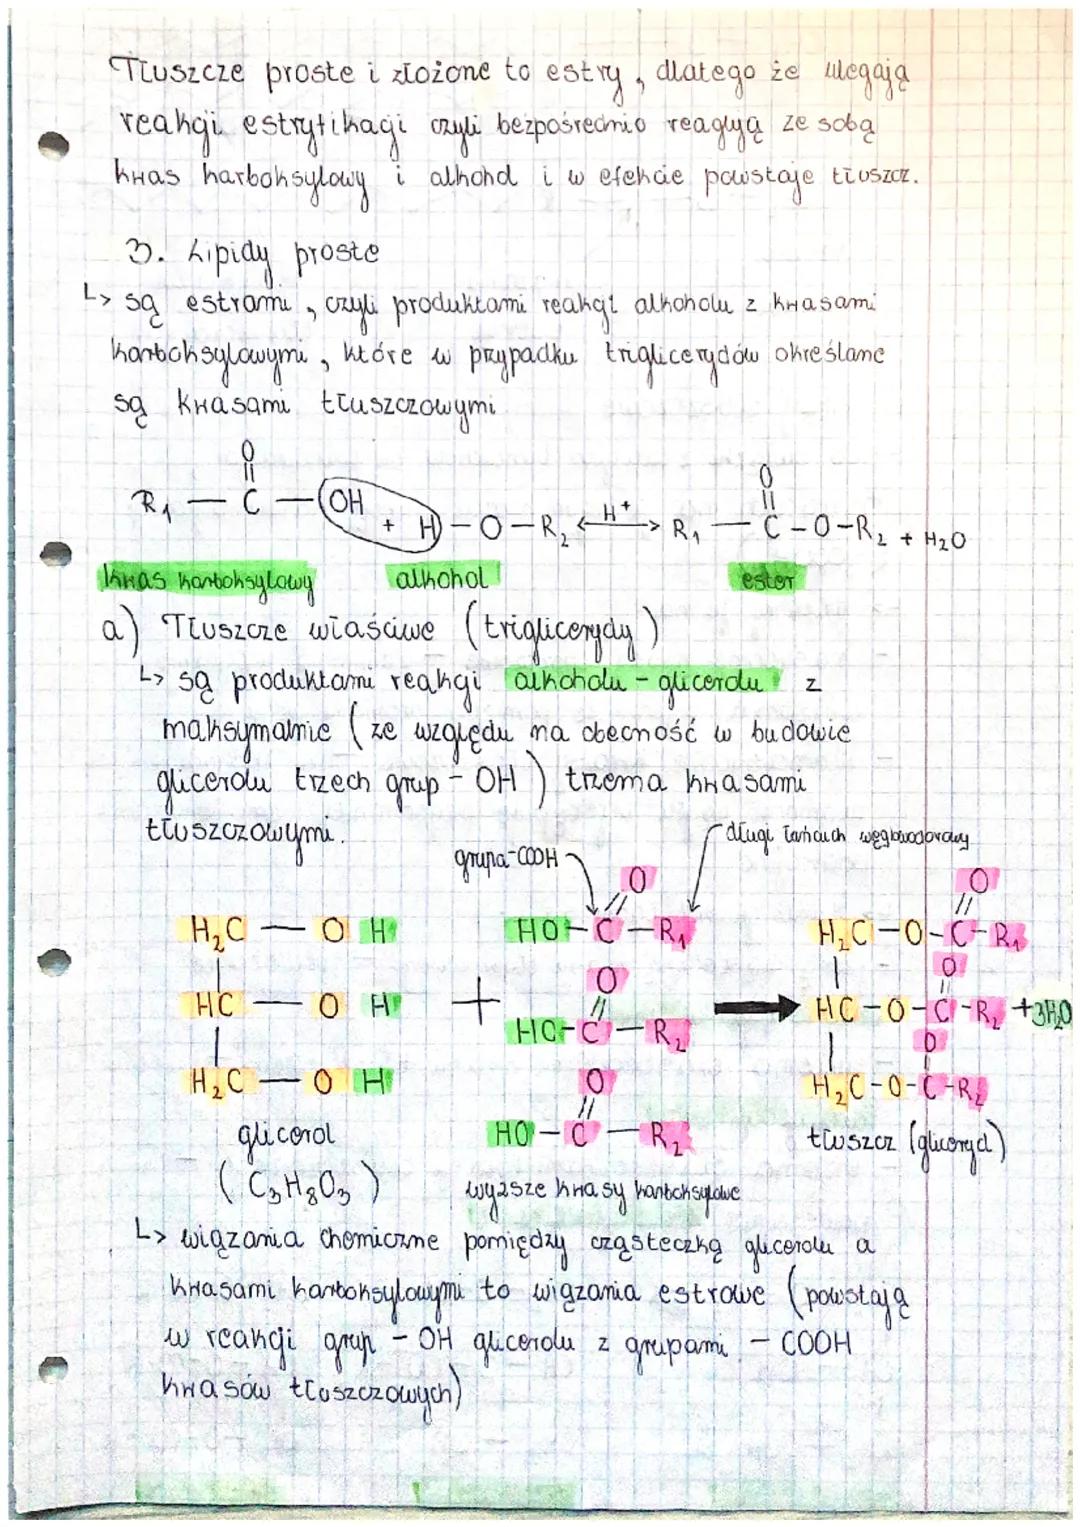 Tłuszcze proste i złożone to estry, dlatego że ulegają
reakcji estryfikacji czyli bezpośrednio reagują ze sobą
kwas karboksylowy i alkohol i w efekcie powstaje tłuszcz.
3. Lipidy proste
↳ są estrami, czyli produktami reakcji alkoholu z kwasami
karboksylowymi, które w przypadku triglicerydów określane
są kwasami tłuszczowymi
O
O
R₁ — C — OH + H — O — R₂ ⟷ H⁺ R₁ — C — O — R₂ + H₂O
kwas karboksylowy alkohol ester
a) Tłuszcze właściwe (triglicerydy)
↳ są produktami reakcji alkoholu - glicerolu z
maksymalnie (ze względu na obecność w budowie
glicerolu trzech grup - OH) trzema kwasami
tłuszczowymi.
grupa -COOH długi łańcuch węglowodorowy
O O
H₂C — O H HO — C — R₁ H₂C — O — C — R₁
O O
HC — O H + HO — C — R₂ → HC — O — C — R₂ + 3H₂O
O O
H₂C — O H HO — C — R₂ H₂C — O — C — R₂
glicerol tłuszcz (gliceryd)
(C₃H₈O₃) wyższe kwasy karboksylowe
↳ wiązania chemiczne pomiędzy cząsteczką glicerolu a
kwasami karboksylowymi to wiązania estrowe (powstają
w reakcji grup - OH glicerolu z grupami - COOH
kwasów tłuszczowych)